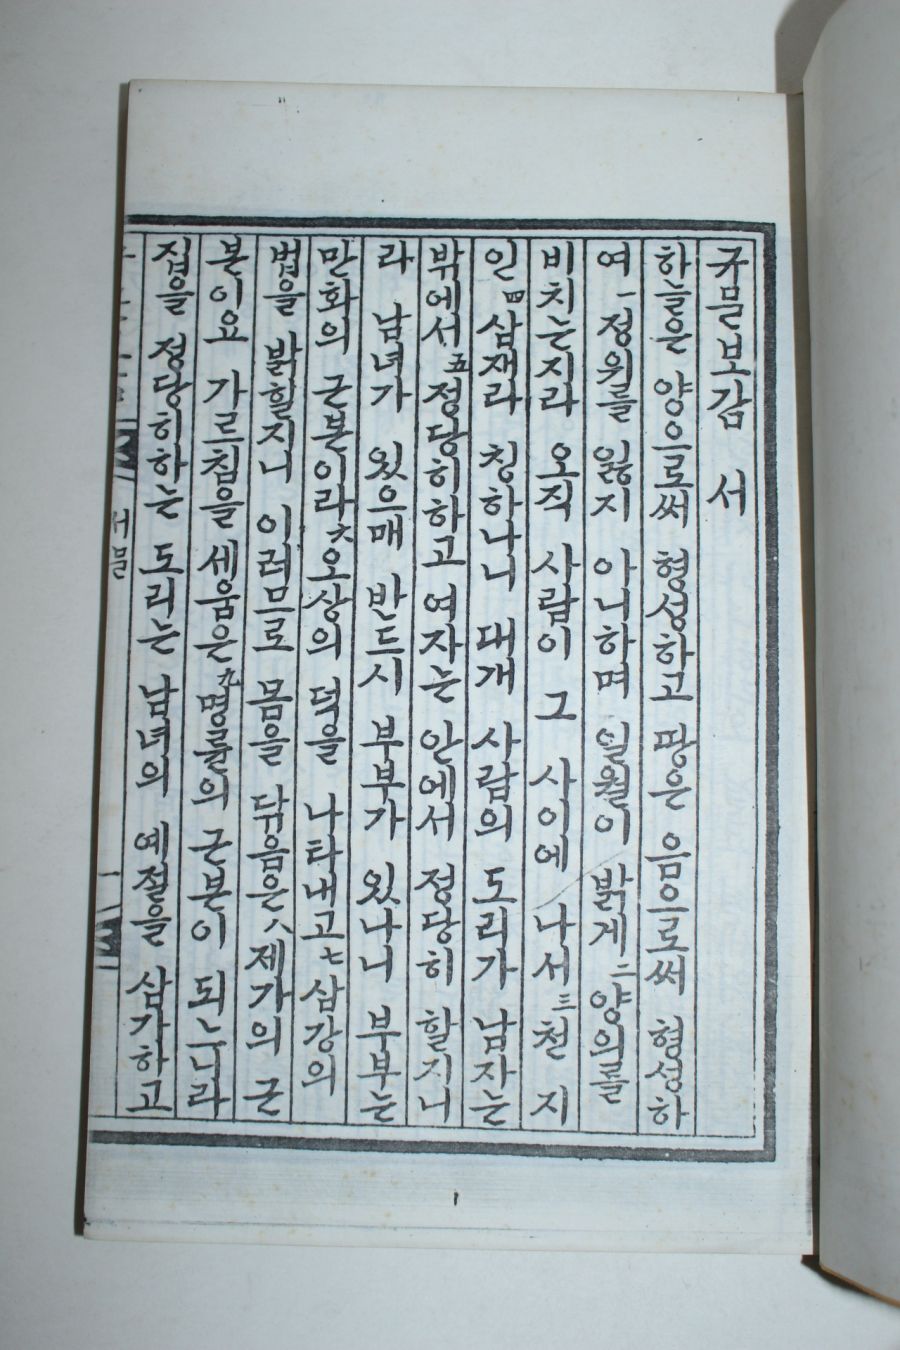 규문보감 서
하늘은 양으로써 형성하고 땅은 음으로써 형성하
여 一정위를 잃지 아니하며 일월이 밝게 二양의를
비치는지라 오직 사람이 그 사이에 나서 三천 지
인 四삼재라 칭하나니 대개 사람의 도리가 남자는
밖에서 五정당히하고 여자는 안에서 정당히 할지니
라 남녀가 있으매 반드시 부부가 있나니 부부는
만화의 근본이라 六오상의 덕을 나타내고 七삼강의
법을 밝힐지니 이러므로 몸을 닦음은 八제가의 근
본이요 가르침을 세움은 九명륜의 근본이 되나니라
집을 정당히하는 도리는 남녀의 예절을 삼가하고
서문
一